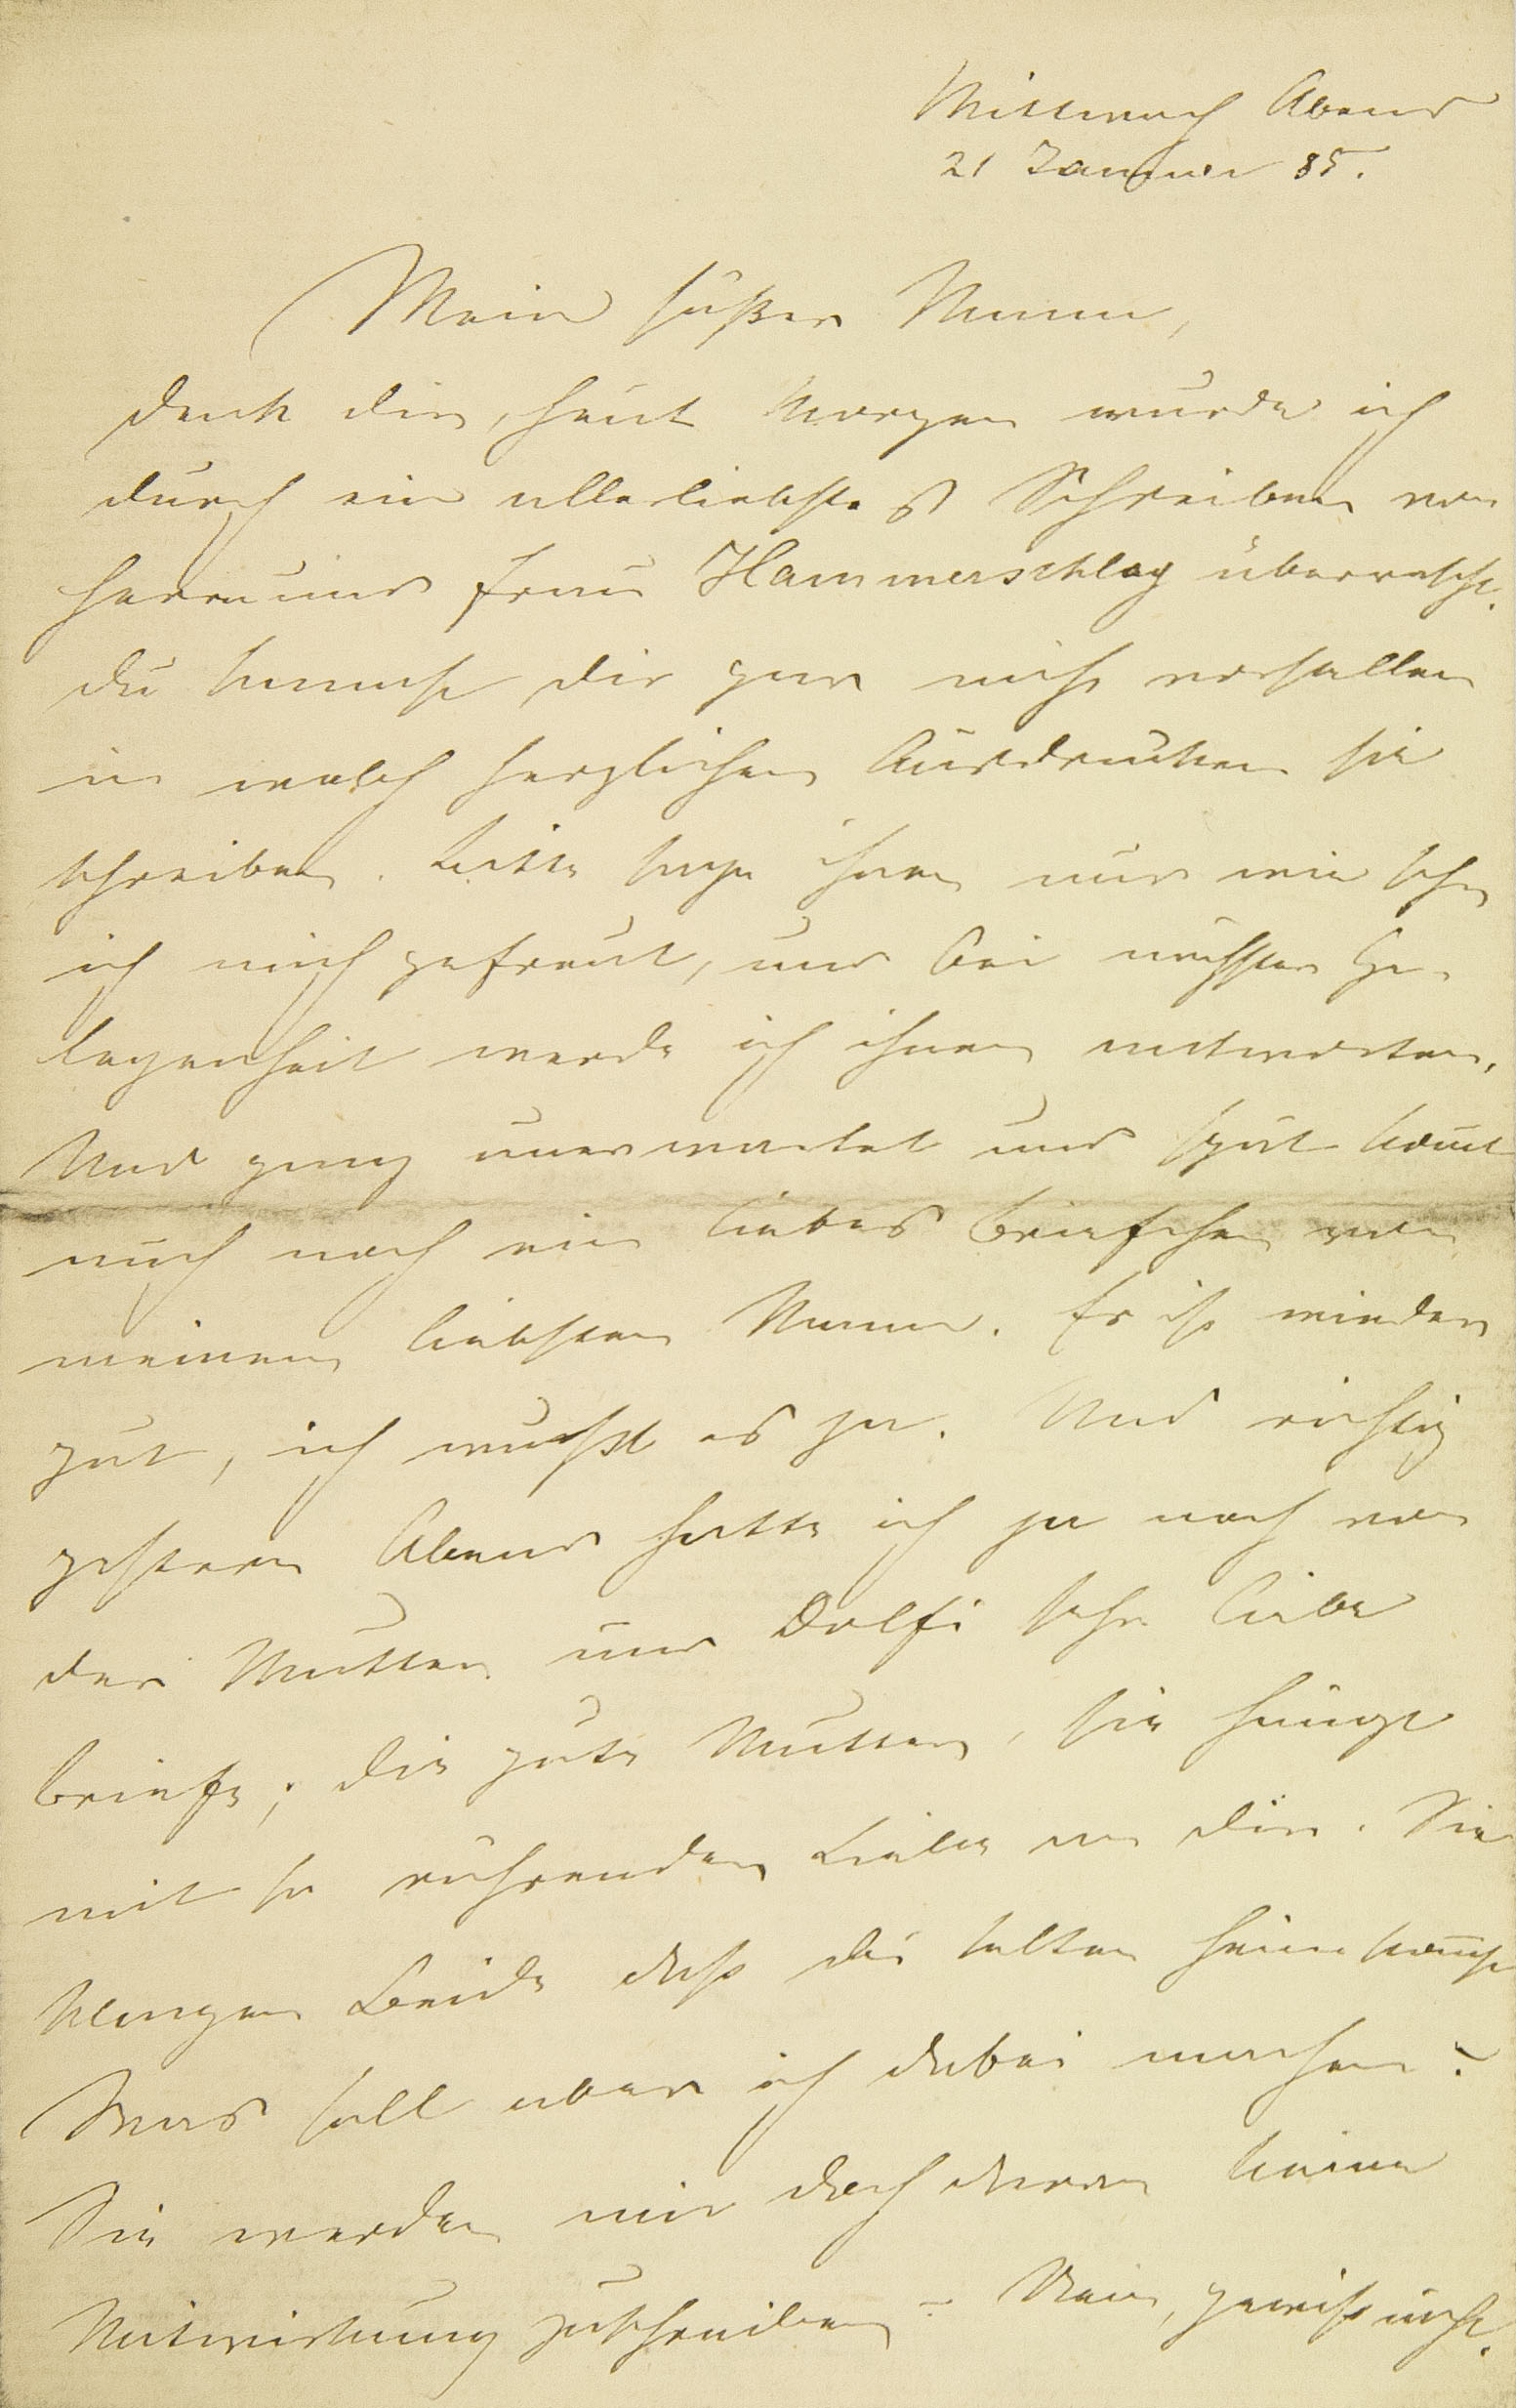 Mittwoch Abend
21 Januar 85.
Mein süßer Mann,
denk dir, heut Morgen wurde ich
durch ein allerliebstes Schreiben von
Herrn und Frau Hammerschlag überrascht.
du kannst dir gar nicht vorstellen
in welch herzlichen Ausdrücken sie
schreiben. Bitte sage ihnen nur wie sehr
ich mich gefreut, und bei nächster Ge-
legenheit werde ich ihnen antworten.
Und ganz unerwartet und spät kam
auch noch ein liebes Briefchen von
meinem liebsten Mann. Er ist wieder
gut, ich wußt es ja. Und richtig
gestern Abend hatte ich ja noch von
der Mutter und Dolfi sehr liebe
Briefe; die gute Mutter, sie hängt
mit so rührender Liebe an dir. Sie
klagen Beide daß du selten heim kommst
Was soll aber ich dabei machen?
Sie werden mir doch daran keine
Mitwirkung zuschreiben? Nein, gewiß nicht.